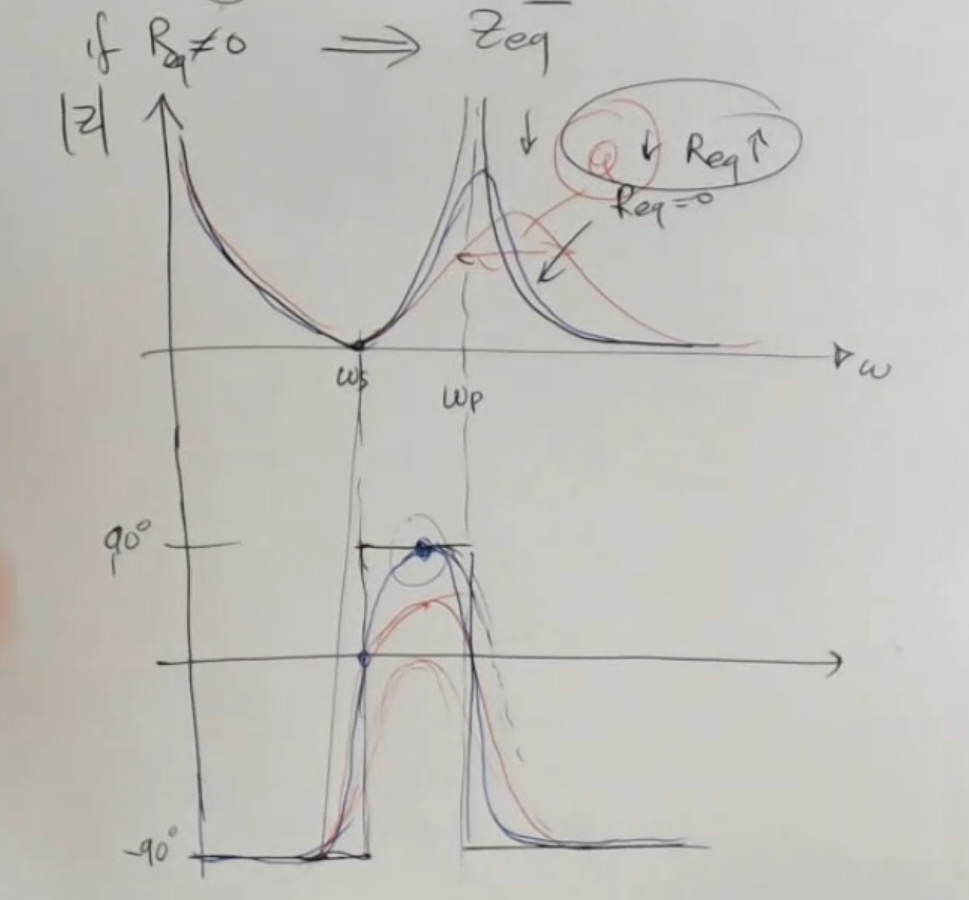 if Req≠0 ⟹ Zeq
|Z|
↓ Q ↓ Req ↑
Req=0
ωs
ωp
ω
90°
-90°